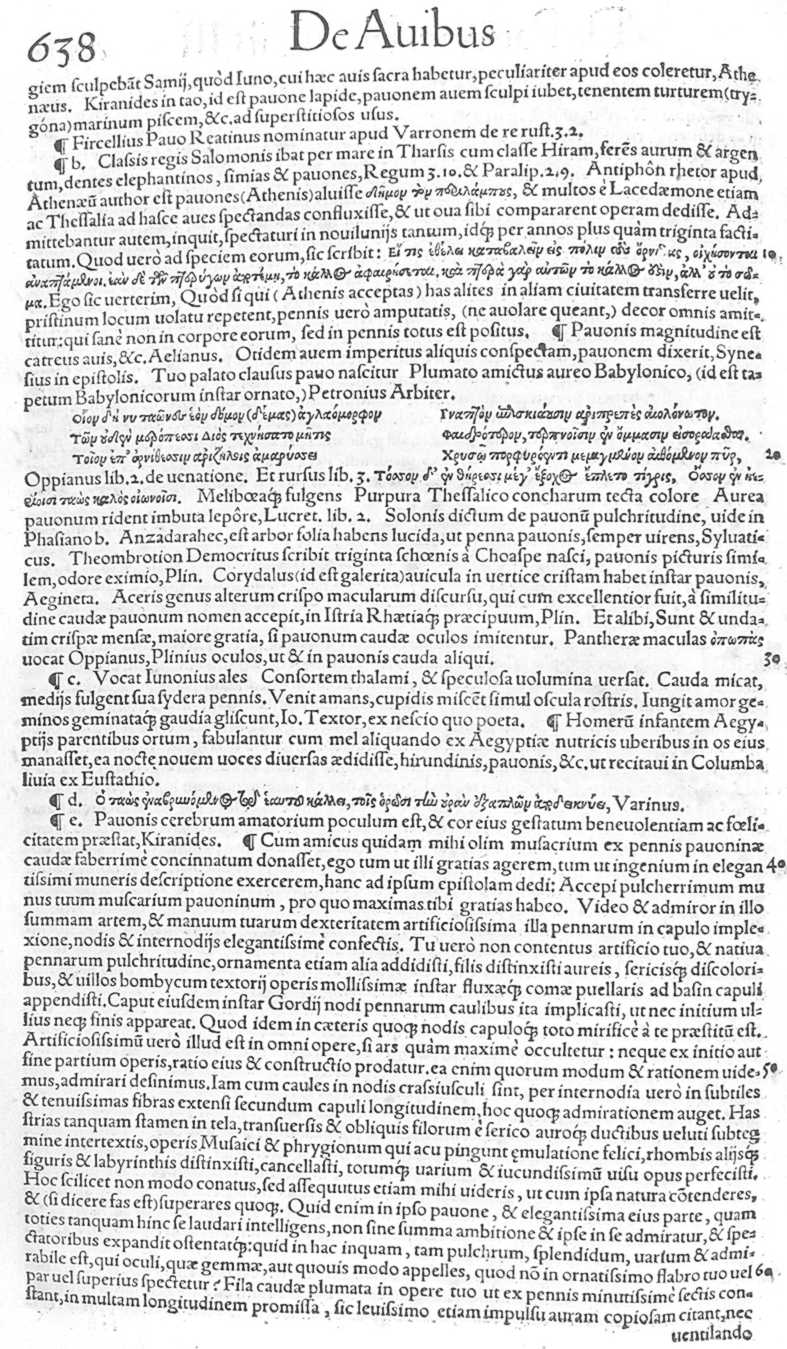 638 De Auibus
giem sculpebãt Samij, quòd Iuno, cui hæc auis sacra habetur, peculiariter apud eos coleretur, Athe-
næus. Kiranides in tao, id est pauone lapide, pauonem auem sculpi iubet, tenentem turturem (try-
góna) marinum piscem, &c. ad superstitiosos usus.
¶ Fircellius Pauo Reatinus nominatur apud Varronem de re rust. 3.2.
¶ b. Classis regis Salomonis ibat per mare in Tharsis cum classe Hiram, ferẽs aurum & argen
tum, dentes elephantinos, simias & pauones, Regum 3. 10. & Paralip. 2. 9. Antiphôn rhetor apud
Athenæũ author est pauones (Athenis) aluisse & multos è Lacedæmone etiam
ac Thessalia ad hasce aues spectandas confluxisse, & ut oua sibi compararent operam dedisse. Ad-
mittebantur autem, inquit, spectaturi in nouilunijs tantum, idq́; per annos plus quàm triginta facti-
tatum. Quod uerò ad speciem eorum, sic scribit: Εἴ τις ἐθέλει καταβαλεῖν εἰς πόλιν οἰχήσονται 10
τὸ κάλλος ἀφαιρήσεται, γὰρ αὐτῶν τὸ κάλλος ἀλλ' οὐ τὸ σῶ-
μα. Ego sic uerterim, Quòd si qui (Athenis acceptas) has alites in aliam ciuitatem transferre uelit,
pristinum locum uolatu repetent, pennis uerò amputatis, (ne auolare queant,) decor omnis amit-
titur: qui sanè non in corpore eorum, sed in pennis totus est positus. ¶ Pauonis magnitudine est
catreus auis, &c. Aelianus. Otidem auem imperitus aliquis conspectam, pauonem dixerit, Syne-
sius in epistolis. Tuo palato clausus pauo nascitur Plumato amictus aureo Babylonico, (id est ta-
petum Babylonicorum instar ornato,) Petronius Arbiter.
Οἷον δὴ νυ (δέμας) ἀγλαόμορφον
ἀριπρεπὲς αἰολόνωτον.
Τῶν οὐδὲν μερόπεσσι Διὸς τεχνήσατο μῆτις
Φαιδρότερον, τερπνοῖσιν ἐν ὄμμασιν εἰσοράασθαι.
Τοῖον ἐπ' ὀρνίθεσσιν ἀριζήλοις ἀμαρύσσει
Χρυσῷ πορφυρόεντι μεμιγμένον αἰθόμενον πῦρ, 20
Oppianus lib. 2. de uenatione. Et rursus lib. 3. Τόσσον δ' ἐν θήρεσσι μέγ' ἔξοχος ἔπλετο τίγρις, Ὅσσον ἐν ἠε-
ρίοισι ταὼς καλὸς οἰωνοῖσι. Melibœaq́; fulgens Purpura Thessalico concharum tecta colore Aurea
pauonum rident imbuta lepôre, Lucret. lib. 2. Solonis dictum de pauonũ pulchritudine, uide in
Phasiano b. Anzadarahec, est arbor folia habens lucida, ut penna pauonis, semper uirens, Syluati-
cus. Theombrotion Democritus scribit triginta schœnis à Choaspe nasci, pauonis picturis simi-
lem, odore eximio, Plin. Corydalus (id est galerita) auicula in uertice cristam habet instar pauonis,
Aegineta. Aceris genus alterum crispo macularum discursu, qui cum excellentior fuit, à similitu-
dine caudæ pauonum nomen accepit, in Istria Rhætiaq́; præcipuum, Plin. Et alibi, Sunt & unda-
tim crispæ mensæ, maiore gratia, si pauonum caudæ oculos imitentur. Pantheræ maculas ὀπωπὰς
uocat Oppianus, Plinius oculos, ut & in pauonis cauda aliqui. 30
¶ c. Vocat Iunonius ales Consortem thalami, & speculosa uolumina uersat. Cauda micat,
medijs fulgent sua sydera pennis. Venit amans, cupidis miscẽt simul oscula rostris. Iungit amor ge-
minos geminataq́; gaudia gliscunt, Io. Textor, ex nescio quo poeta. ¶ Homerũ infantem Aegy-
ptijs parentibus ortum, fabulantur cum mel aliquando ex Aegyptiæ nutricis uberibus in os eius
manasset, ea nocte nouem uoces diuersas ædidisse, hirundinis, pauonis, &c. ut recitaui in Columba
liuia ex Eustathio.
¶ d. Ὁ ταὼς ἐναβρυνόμενος ἑαυτοῦ κάλλει, τοῖς ὁρῶσι τὴν οὐρὰν ἐξαπλῶν Varinus.
¶ e. Pauonis cerebrum amatorium poculum est, & cor eius gestatum beneuolentiam ac fœli-
citatem præstat, Kiranides. ¶ Cum amicus quidam mihi olim musacrium ex pennis pauoninæ
caudæ faberrimè concinnatum donasset, ego tum ut illi gratias agerem, tum ut ingenium in elegan 40
tissimi muneris descriptione exercerem, hanc ad ipsum epistolam dedi: Accepi pulcherrimum mu
nus tuum muscarium pauoninum, pro quo maximas tibi gratias habeo. Video & admiror in illo
summam artem, & manuum tuarum dexteritatem artificiosissima illa pennarum in capulo imple-
xione, nodis & internodijs elegantissimè confectis. Tu uerò non contentus artificio tuo, & natiua
pennarum pulchritudine, ornamenta etiam alia addidisti, filis distinxisti aureis, sericisq́; discolori-
bus, & uillos bombycum textorij operis mollissimæ instar fluxæq́; comæ puellaris ad basin capuli
appendisti. Caput eiusdem instar Gordij nodi pennarum caulibus ita implicasti, ut nec initium ul-
lius neq́; finis appareat. Quod idem in cæteris quoq́; nodis capuloq́; toto mirificè à te præstitũ est.
Artificiosissimũ uerò illud est in omni opere, si ars quàm maximè occultetur: neque ex initio aut
fine partium operis, ratio eius & constructio prodatur. ea enim quorum modum & rationem uide- 50
mus, admirari desinimus. Iam cum caules in nodis crassiusculi sint, per internodia uerò in subtiles
& tenuissimas fibras extensi secundum capuli longitudinem, hoc quoq́; admirationem auget. Has
strias tanquam stamen in tela, transuersis & obliquis filorum è serico auroq́; ductibus ueluti subteg
mine intertextis, operis Musaici & phrygionum qui acu pingunt ęmulatione felici, rhombis alijsq́;
figuris & labyrinthis distinxisti, cancellasti, totumq́; uarium & iucundissimũ uisu opus perfecisti.
Hoc scilicet non modo conatus, sed assequutus etiam mihi uideris, ut cum ipsa natura cõtenderes,
& (si dicere fas est) superares quoq́;. Quid enim in ipso pauone, & elegantissima eius parte, quam
toties tanquam hinc se laudari intelligens, non sine summa ambitione & ipse in se admiratur, & spe-
ctatoribus expandit ostentatq́;: quid in hac inquam, tam pulchrum, splendidum, uarium & admi-
rabile est, qui oculi, quæ gemmæ, aut quouis modo appelles, quod nõ in ornatissimo flabro tuo uel 60
par uel superius spectetur? Fila caudæ plumata in opere tuo ut ex pennis minutissimè sectis con-
stant, in multam longitudinem promissa, sic leuissimo etiam impulsu auram copiosam citant, nec
uentilando